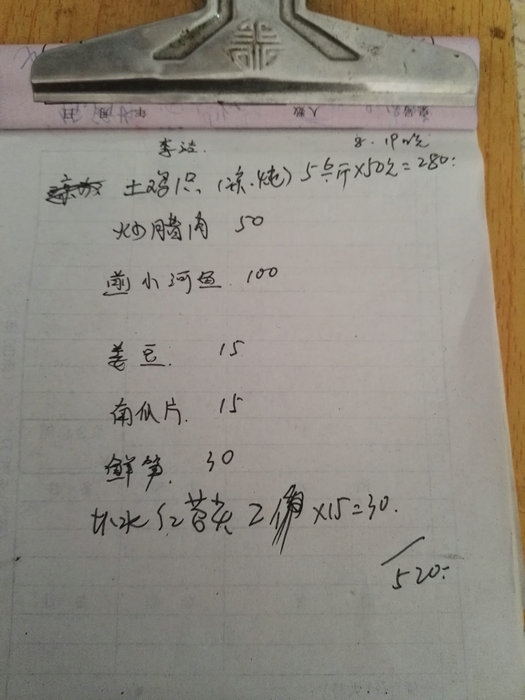 李洁. 8.19晚
土鸡1只 (凉.炖) 5.6斤×50元=280.
炒腊肉 50
煎小河鱼. 100
姜豆. 15
南瓜片. 15
鲜笋. 30
红苕尖 2 ×15=30.
520.